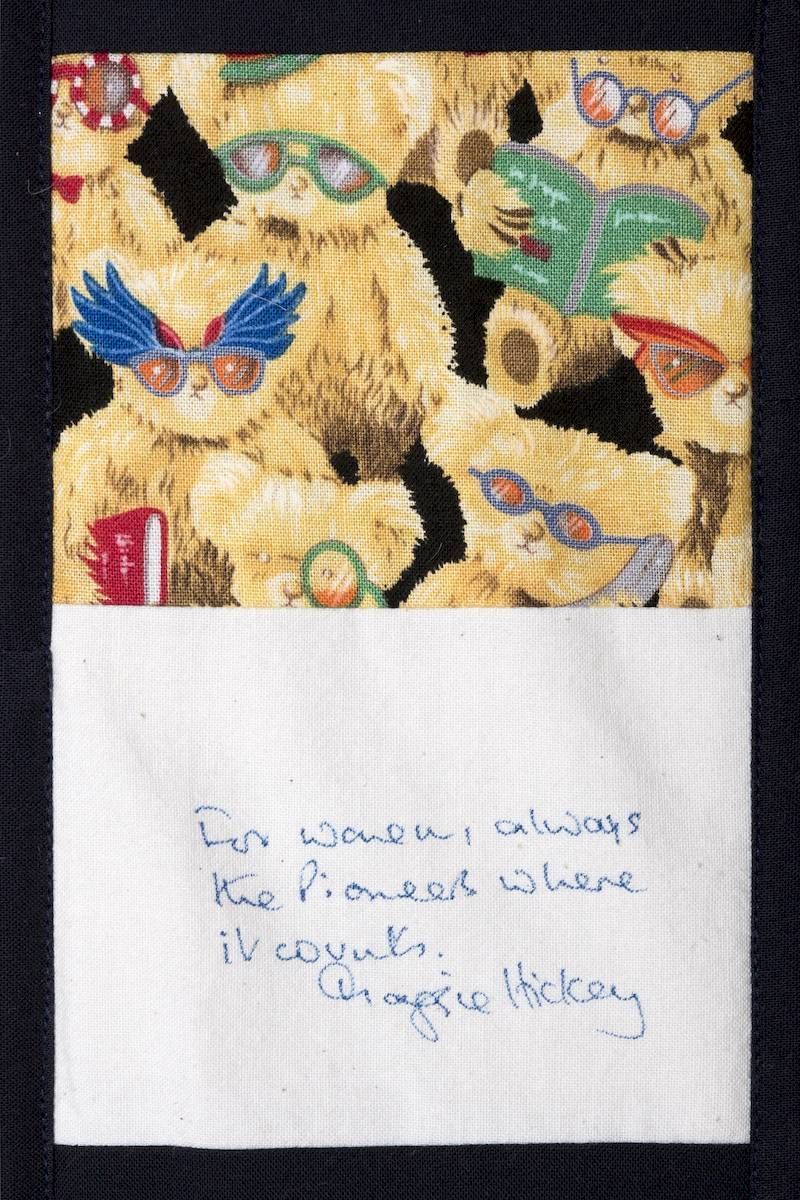 For women, always
the Pioneers where
it counts.
Maggie Hickey